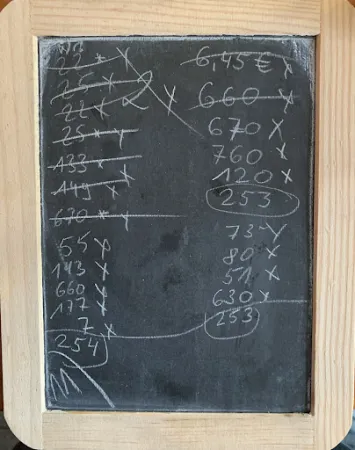 22 x
25 x
22 x
25 x
133 x
149 x
670 x
55 x
143 x
660 x
177 x
7 x
254
6,45 € x
660 x
670 x
760 x
120 x
253
73 x
80 x
51 x
630 x
253